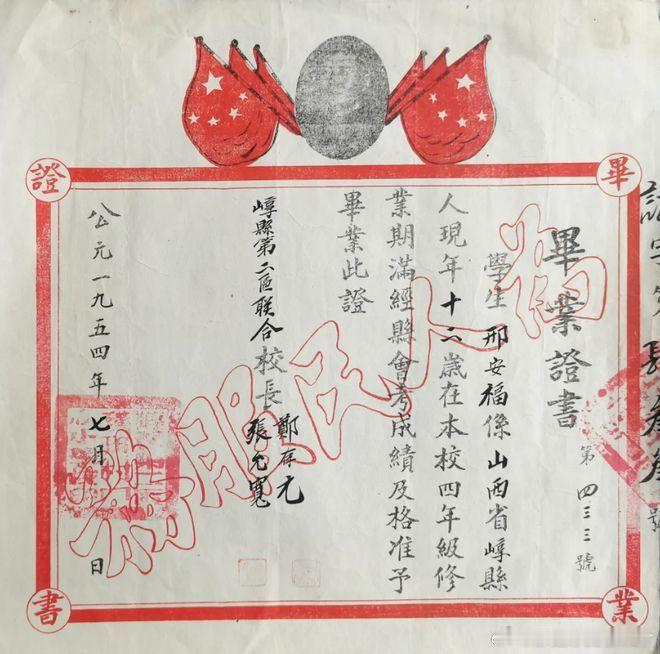 畢業證書
畢業證書
第四三三號
學生邢安福係山西省崞縣
人現年十六歲在本校四年級修
業期滿經縣會考成績及格准予
畢業此證
崞縣第二區联合校長鄭存元
張允寬
公元一九五四年七月日
為人民服務